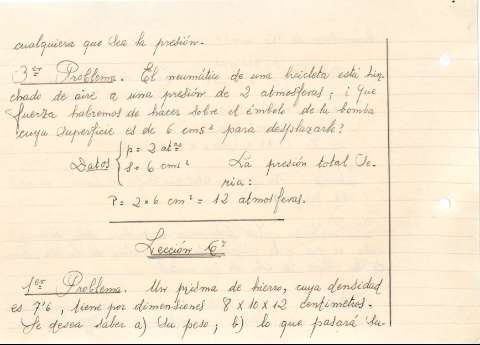 cualquiera que sea la presión.-
3er Problema. El neumático de una bicicleta está hin-
chado de aire a una presión de 2 atmosferas; ¿Que
fuerza habremos de hacer sobre el émbolo de la bomba
cuya superficie es de 6 cms² para desplazarlo?
Datos { p = 2 atms
s = 6 cms² La presión total se-
ria:
P = 2 × 6 cm² = 12 atmosferas.
Lección 6ª
1er Problema. Un prisma de hierro, cuya densidad
es 7'6, tiene por dimensiones 8 x 10 x 12 centímetros.
Se desea saber a) su peso; b) lo que pasará su-